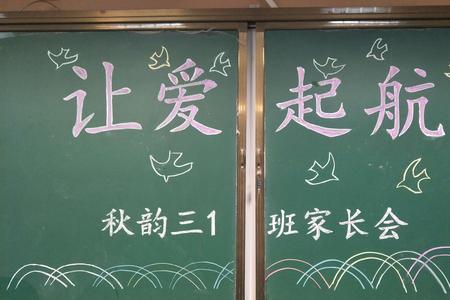 让爱起航
秋韵三1班家长会